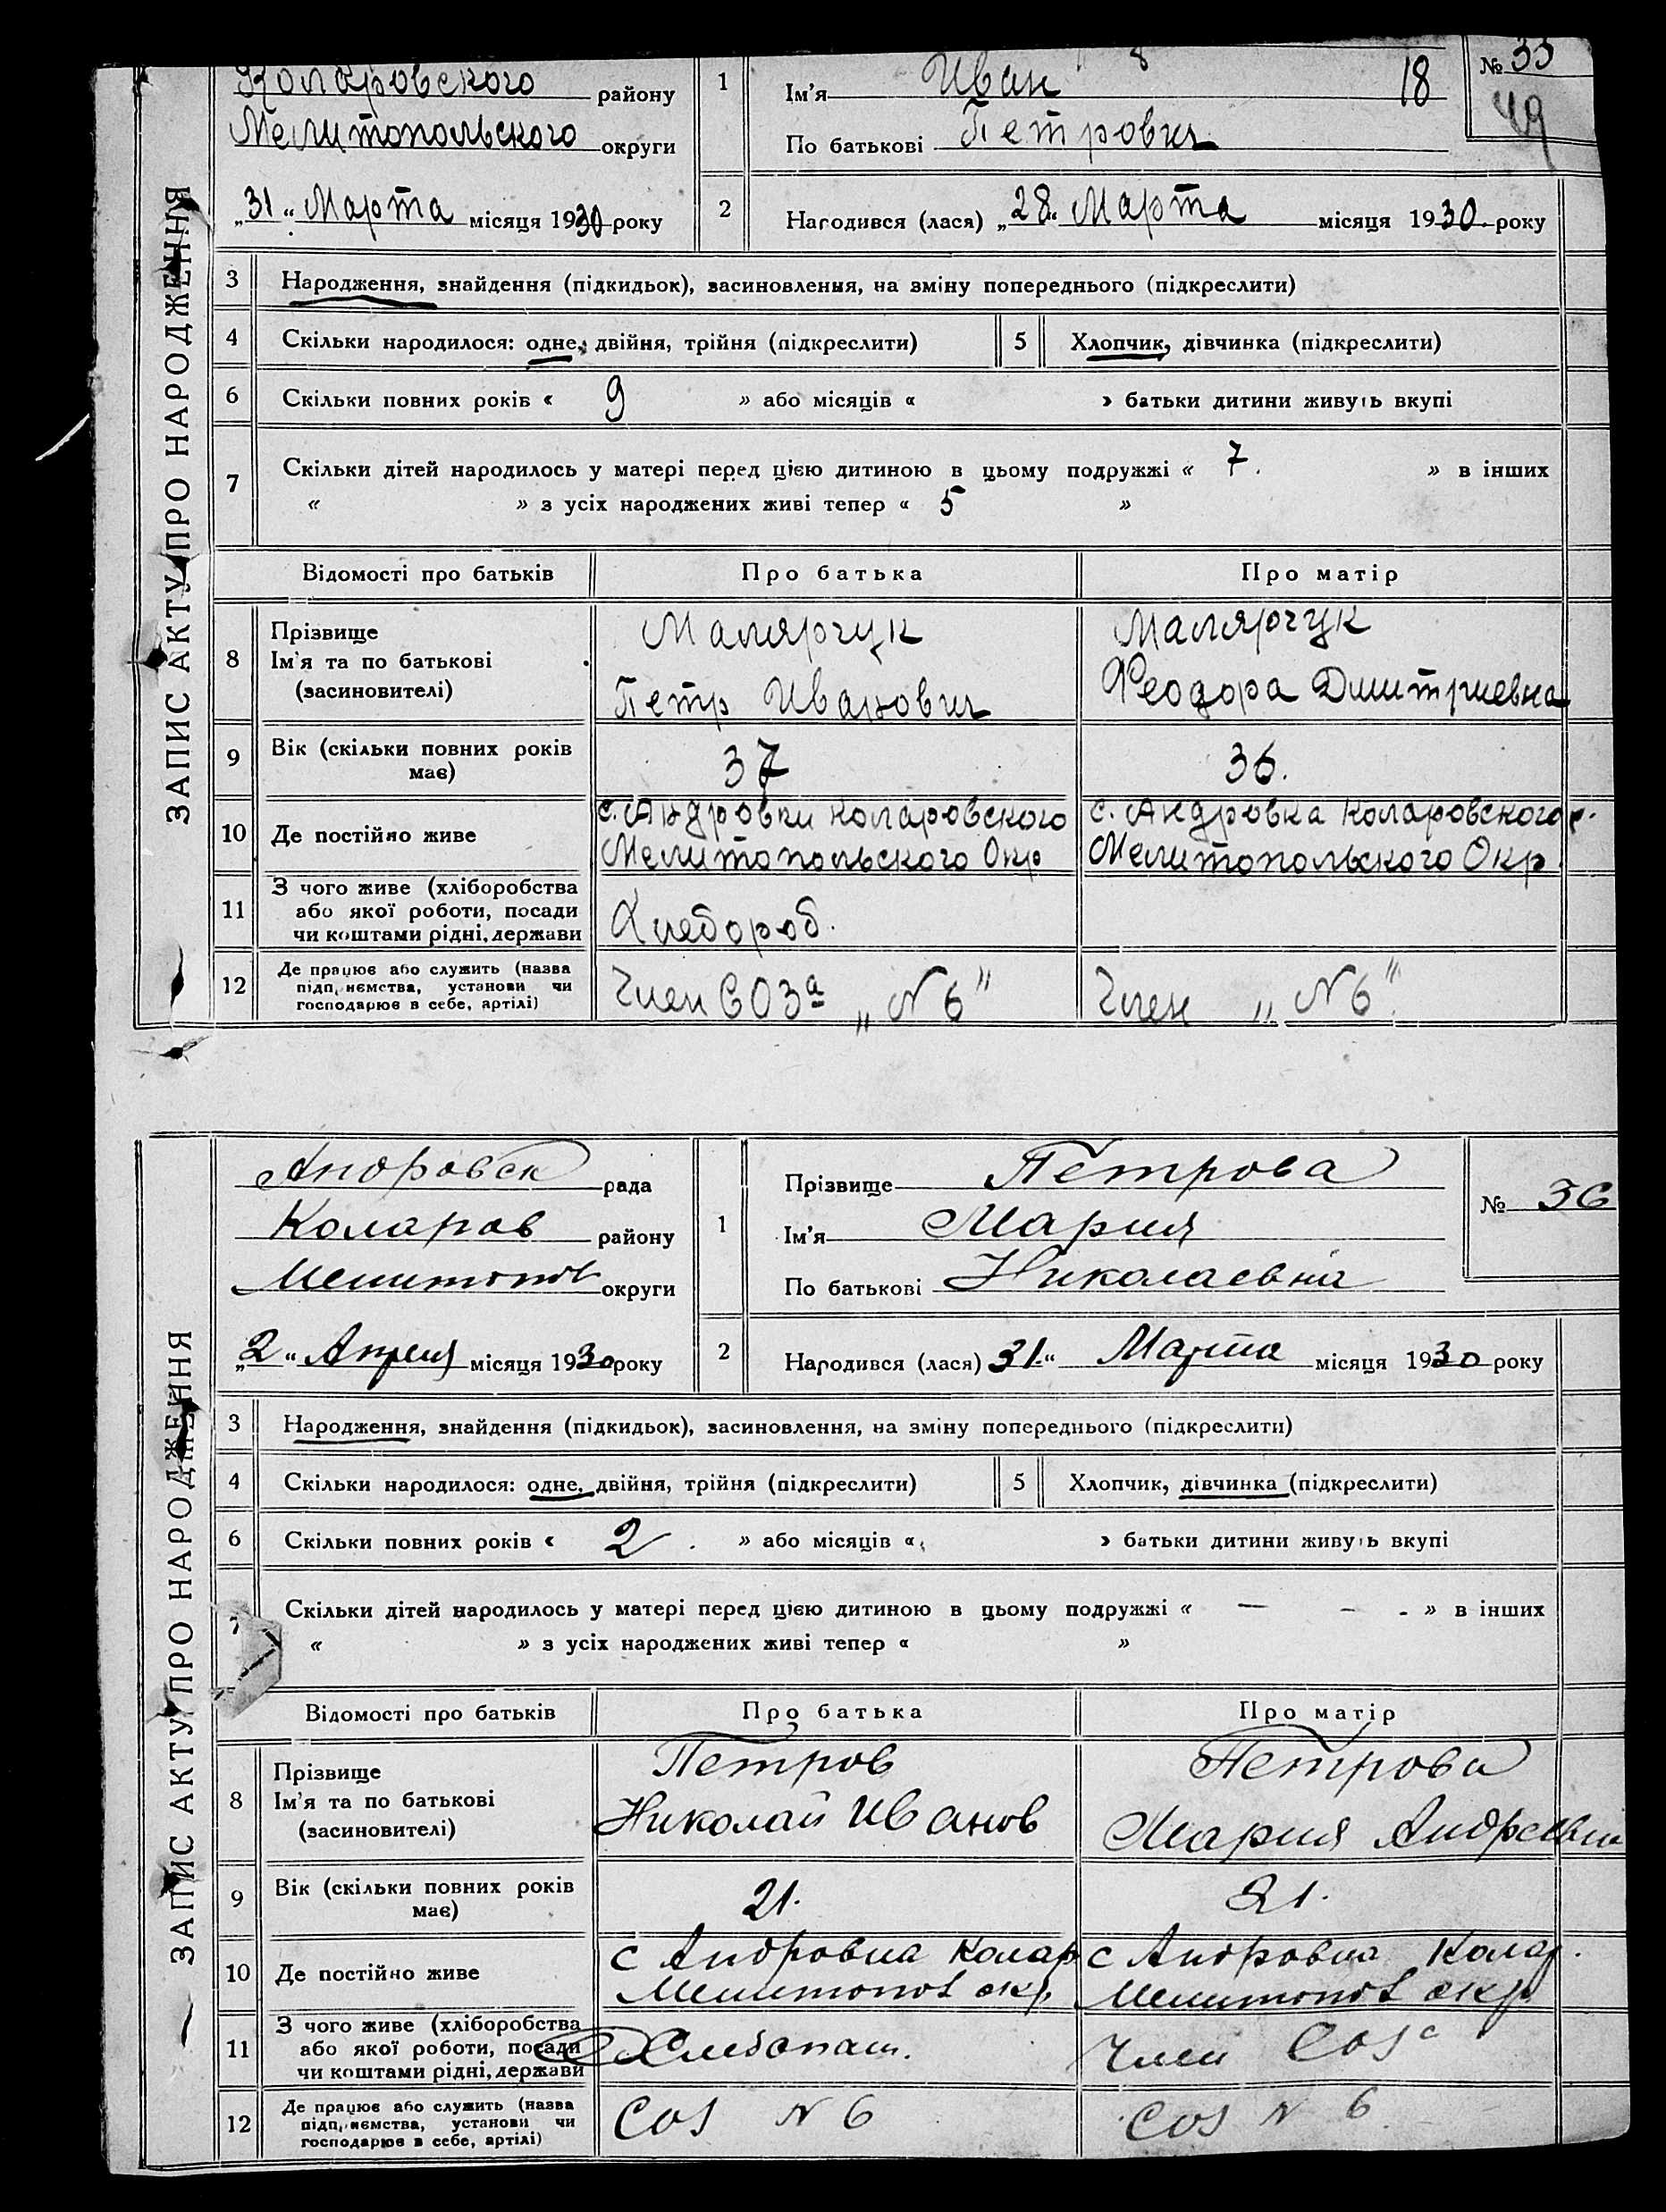 ЗАПИС АКТУ ПРО НАРОДЖЕННЯ
Коларовского району
Мелитопольского округи
„31“ Марта місяця 1930 року
1
Ім'я Иван 18
По батькові Петрович
№ 35
49
2 Народився (лася) „28“ Марта місяця 1930 року
3 Народження, знайдення (підкидьок), засиновлення, на зміну попереднього (підкреслити)
4 Скільки народилося: одне, двійня, трійня (підкреслити)
5 Хлопчик, дівчинка (підкреслити)
6 Скільки повних років « 9 » або місяців « » батьки дитини живуть вкупі
7 Скільки дітей народилось у матері перед цією дитиною в цьому подружжі « 7. » в інших
« » з усіх народжених живі тепер « 5 »
Відомості про батьків Про батька Про матір
8 Прізвище
Ім'я та по батькові
(засиновителі)
Малярчук
Петр Иванович
Малярчук
Феодора Дмитриевна
9 Вік (скільки повних років
має)
37
36.
10 Де постійно живе
с. Андровки Коларовского
Мелитопольского Окр
с. Андровка Коларовского р.
Мелитопольского Окр.
11 З чого живе (хліборобства
або якої роботи, посади
чи коштами рідні, держави
Хлебороб.
12 Де працює або служить (назва
підприємства, установи чи
господарює в себе, артілі)
Член СОЗа „N 6"
Член „N 6".
ЗАПИС АКТУ ПРО НАРОДЖЕННЯ
Андровск рада
Коларов району
Мелитопол округи
„2“ Апреля місяця 1930 року
1
Прізвище Петрова
Ім'я Мария
По батькові Николаевна
№ 36
2 Народився (лася) 31“ Марта місяця 1930 року
3 Народження, знайдення (підкидьок), засиновлення, на зміну попереднього (підкреслити)
4 Скільки народилося: одне, двійня, трійня (підкреслити)
5 Хлопчик, дівчинка (підкреслити)
6 Скільки повних років « 2. » або місяців « » батьки дитини живуть вкупі
7 Скільки дітей народилось у матері перед цією дитиною в цьому подружжі « — — - » в інших
« » з усіх народжених живі тепер « »
Відомості про батьків Про батька Про матір
8 Прізвище
Ім'я та по батькові
(засиновителі)
Петров
Николай Иванов
Петрова
Мария Андреевна
9 Вік (скільки повних років
має)
21.
21.
10 Де постійно живе
с Андровка Колар
Мелитопол окр
с Андровка Колар.
Мелитопол окр
11 З чого живе (хліборобства
або якої роботи, посади
чи коштами рідні, держави
Хлебопаш.
Член Соз
12 Де працює або служить (назва
підприємства, установи чи
господарює в себе, артілі)
Соз N 6
Соз N 6